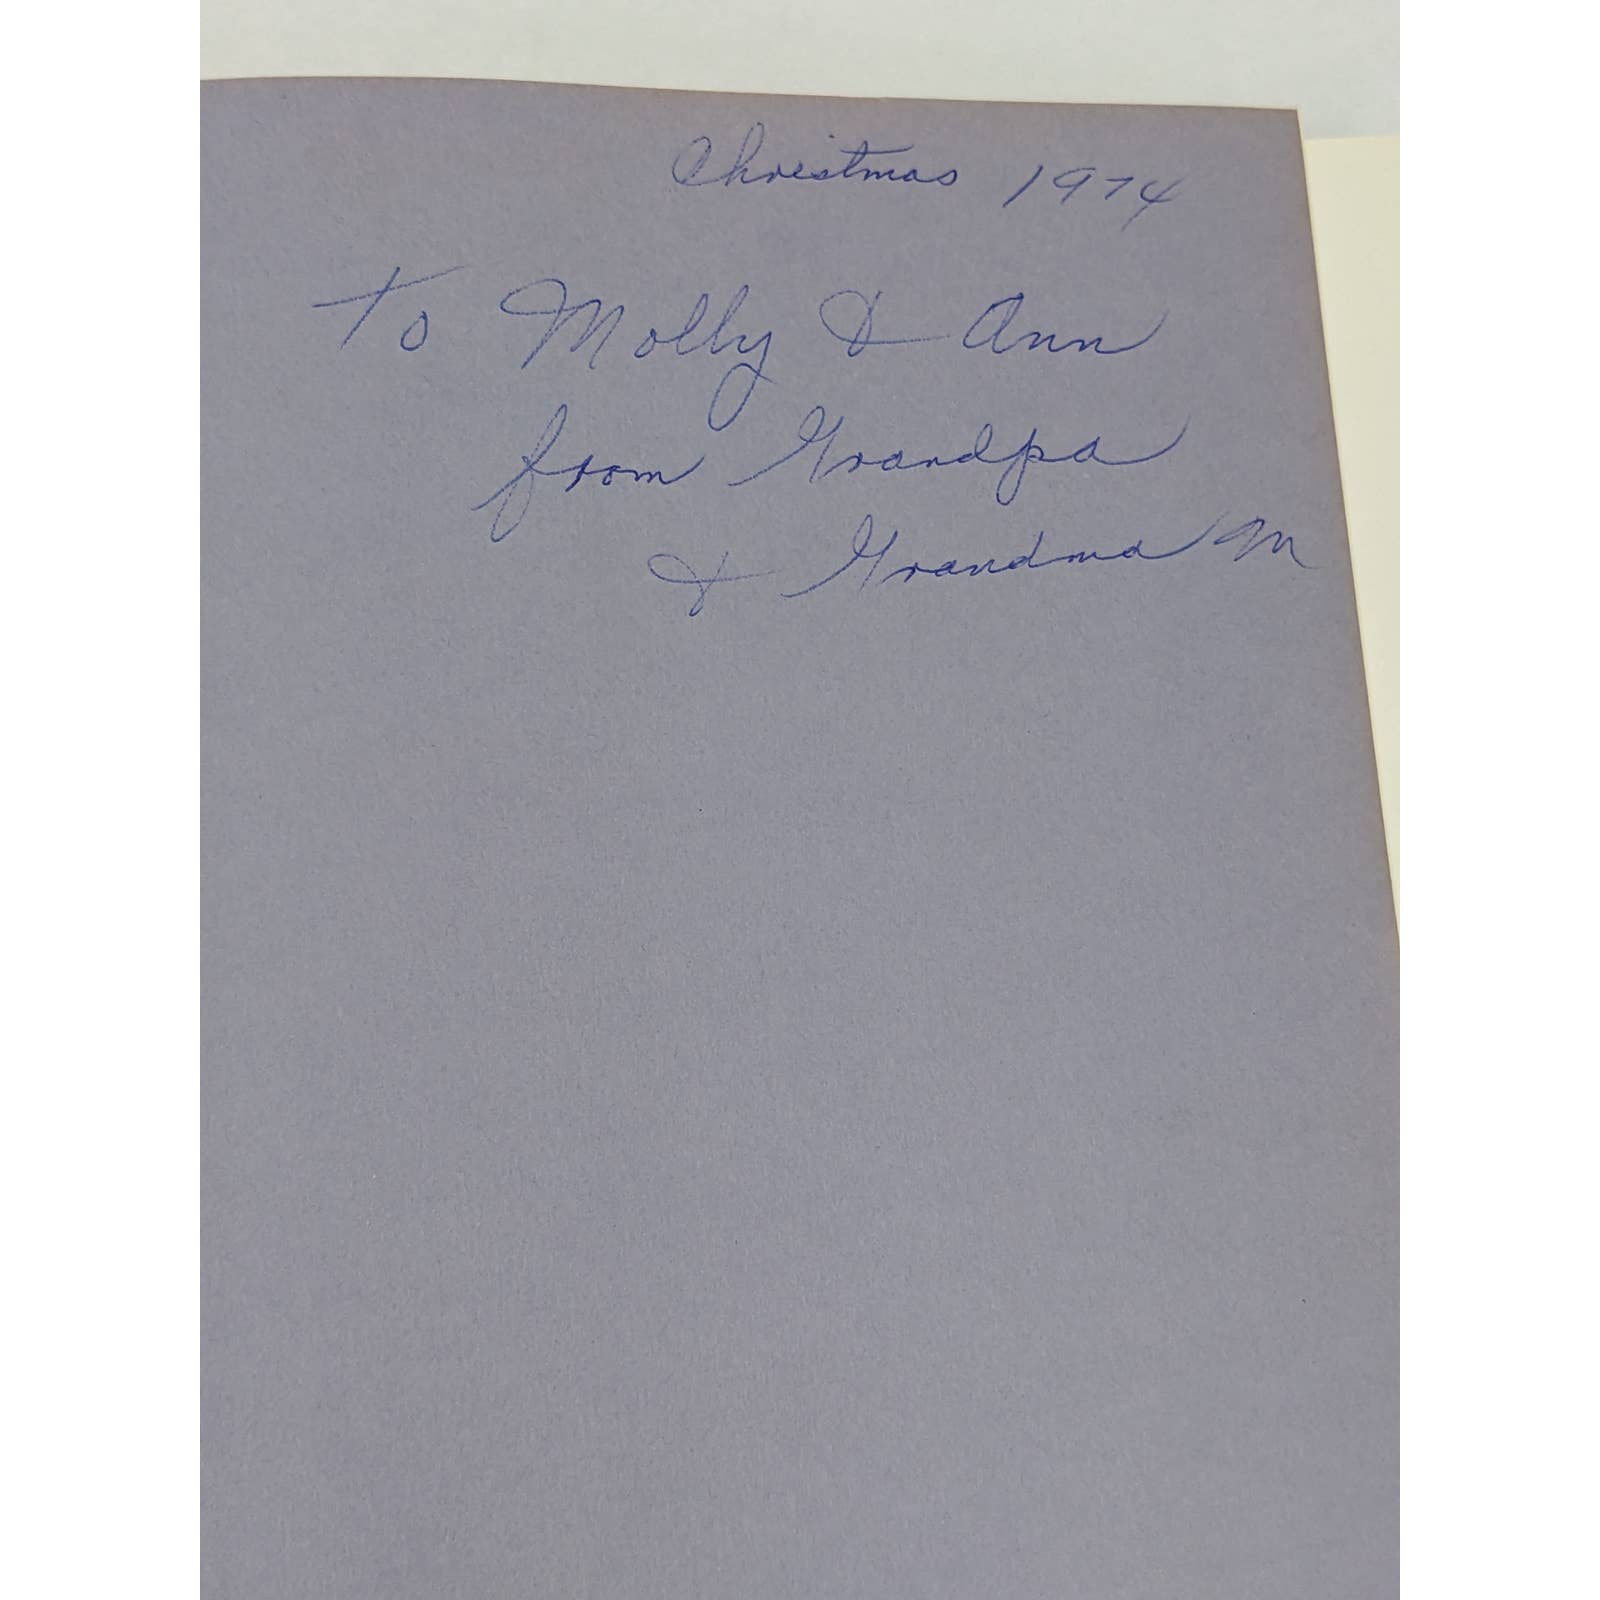 Christmas 1974
To Molly & Ann
from Grandpa
& Grandma M